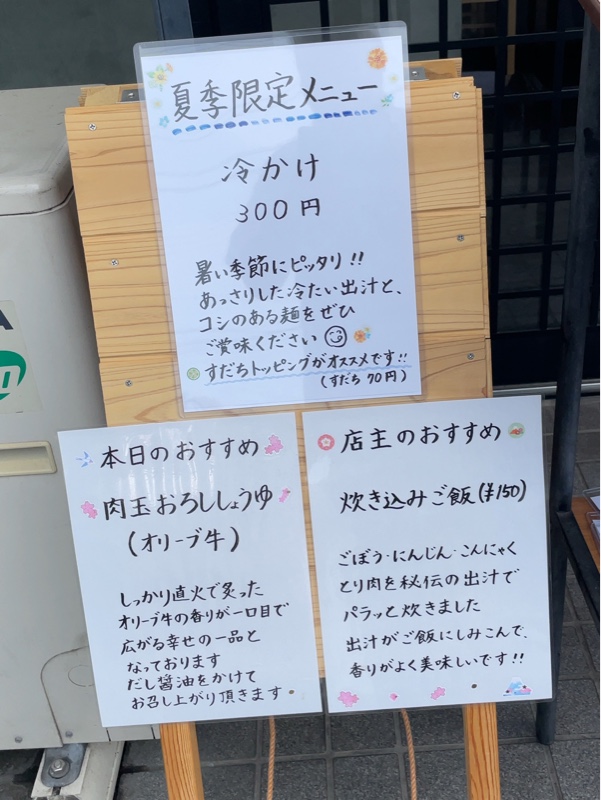 夏季限定メニュー
冷かけ
300円
暑い季節にピッタリ!!
あっさりした冷たい出汁と、
コシのある麺をぜひ
ご賞味ください
すだちトッピングがオススメです!!
(すだち 70円)
本日のおすすめ
肉玉おろししょうゆ
(オリーブ牛)
しっかり直火で炙った
オリーブ牛の香りが一口目で
広がる幸せの一品と
なっております
だし醤油をかけて
お召し上がり頂きます
店主のおすすめ
炊き込みご飯(¥150)
ごぼう・にんじん・こんにゃく
とり肉を秘伝の出汁で
パラッと炊きました
出汁がご飯にしみこんで、
香りがよく美味しいです!!